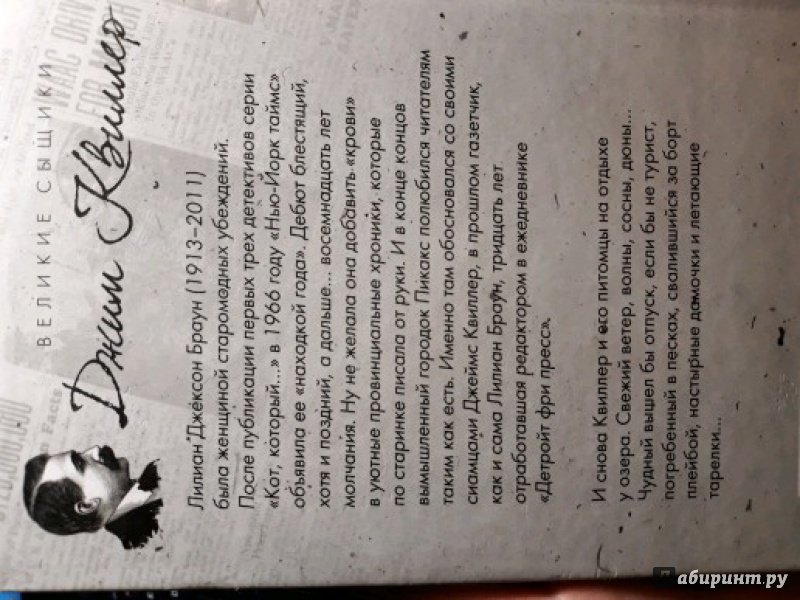 ВЕЛИКИЕ СЫЩИКИ
Джим Квиллер
Лилиан Джексон Браун (1913–2011)
была женщиной старомодных убеждений.
После публикации первых трех детективов серии
«Кот, который...» в 1966 году «Нью-Йорк таймс»
объявила ее «находкой года». Дебют блестящий,
хотя и поздний, а дальше... восемнадцать лет
молчания. Ну не желала она добавить «крови»
в уютные провинциальные хроники, которые
по старинке писала от руки. И в конце концов
вымышленный городок Пикакс полюбился читателям
таким как есть. Именно там обосновался со своими
сиамцами Джеймс Квиллер, в прошлом газетчик,
как и сама Лилиан Браун, тридцать лет
отработавшая редактором в ежедневнике
«Детройт фри пресс».
И снова Квиллер и его питомцы на отдыхе
у озера. Свежий ветер, волны, сосны, дюны...
Чудный вышел бы отпуск, если бы не турист,
погребенный в песках, свалившийся за борт
плейбой, настырные дамочки и летающие
тарелки...
абиринт.ру